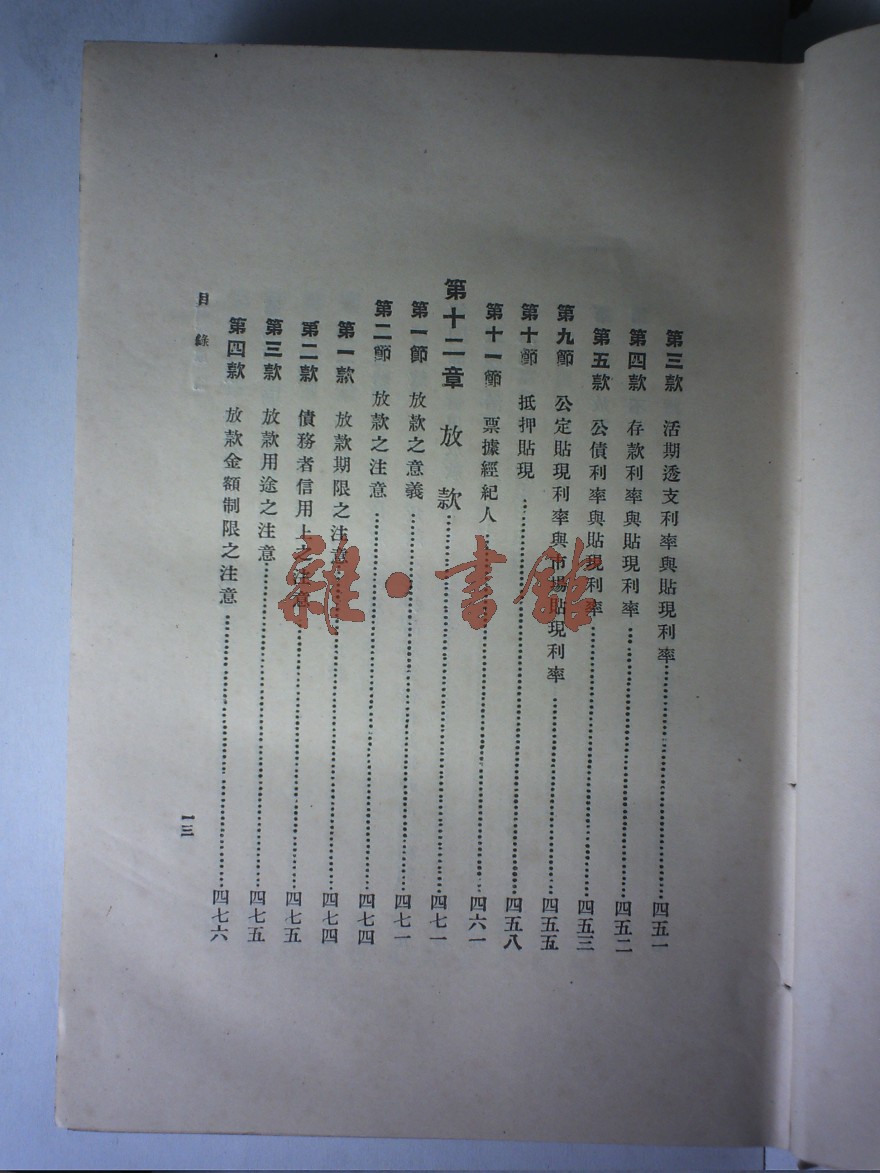 第三款 活期透支利率與貼現利率……四五一
第四款 存款利率與貼現利率……四五二
第五款 公債利率與貼現利率……四五三
第九節 公定貼現利率與市場貼現利率……四五五
第十節 抵押貼現……四五八
第十一節 票據經紀人……四六一
第十二章 放款……四七一
第一節 放款之意義……四七一
第二節 放款之注意……四七四
第一款 放款期限之注意……四七四
第二款 債務者信用上之注意……四七五
第三款 放款用途之注意……四七五
第四款 放款金額制限之注意……四七六
目錄
一三
雜·書館